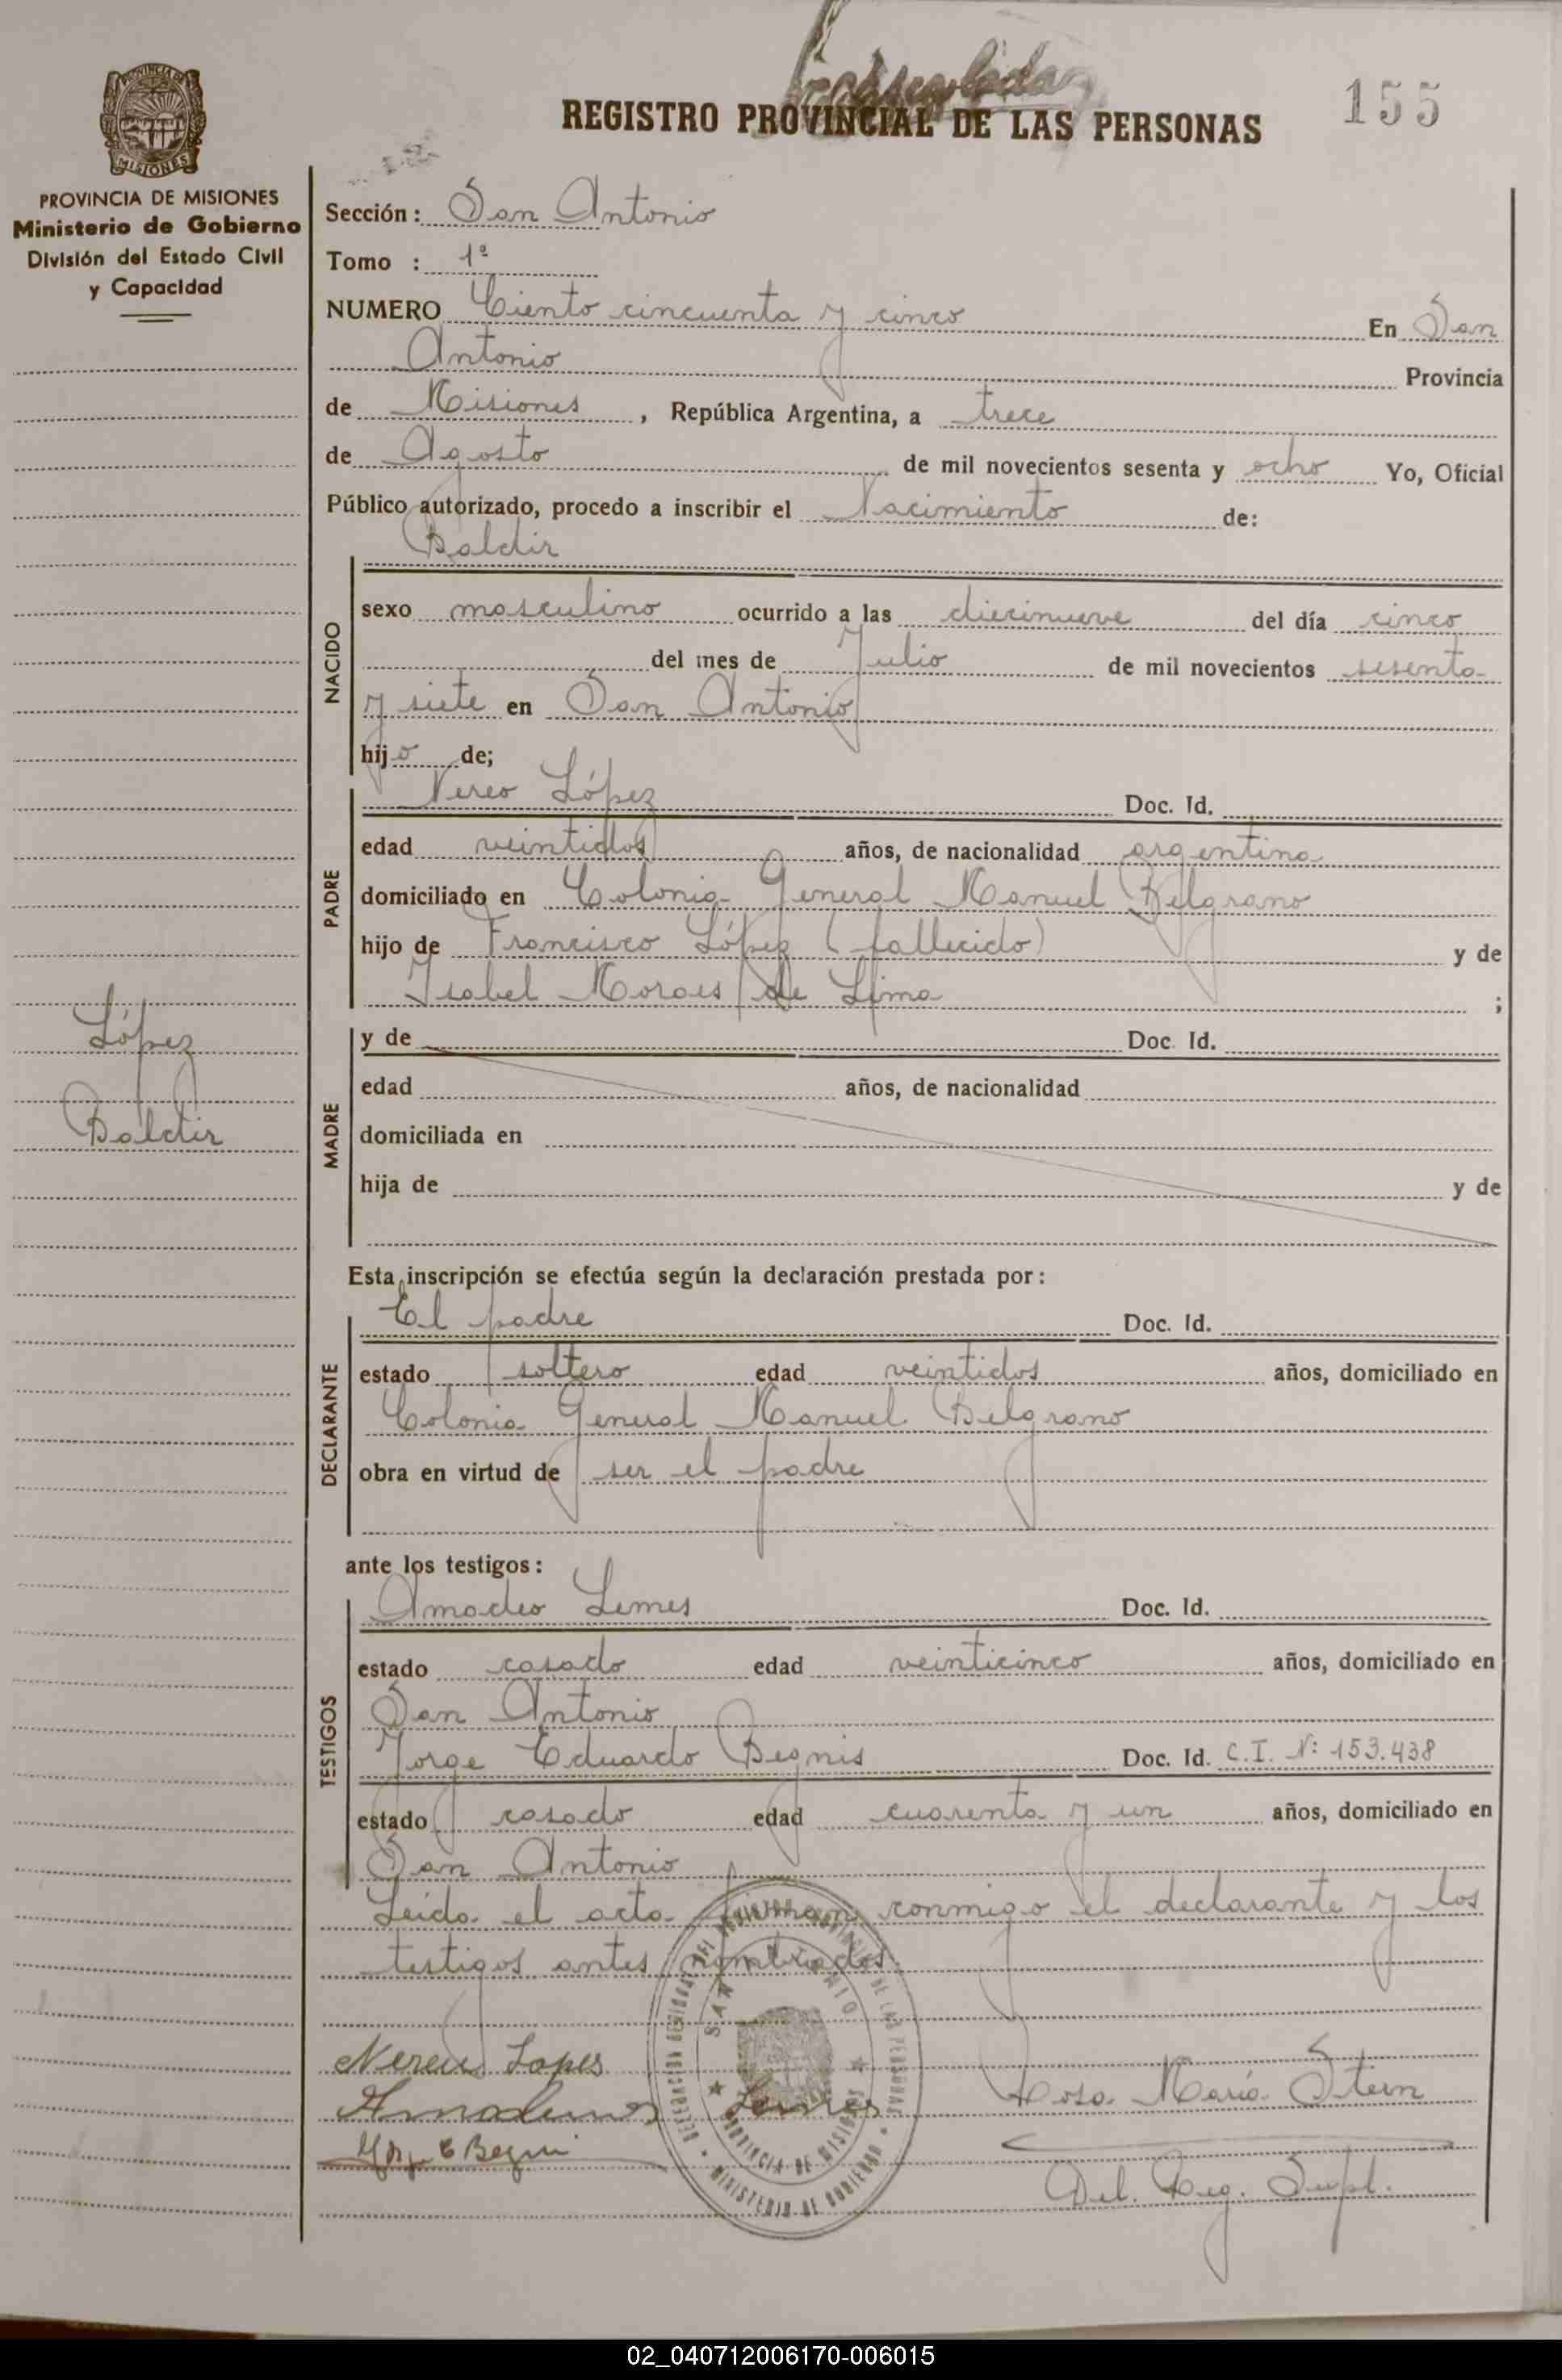 155
REGISTRO PROVINCIAL DE LAS PERSONAS
PROVINCIA DE
MISIONES
PROVINCIA DE MISIONES
Ministerio de Gobierno
División del Estado Civil
y Capacidad
Sección: San Antonio
Tomo : 1º
NUMERO Ciento cincuenta y cinco En San
Antonio Provincia
de Misiones, República Argentina, a trece
de Agosto de mil novecientos sesenta y ocho Yo, Oficial
Público autorizado, procedo a inscribir el Nacimiento de:
Baldir
NACIDO
sexo masculino ocurrido a las diecinueve del día cinco
del mes de Julio de mil novecientos sesenta
y siete en San Antonio
hijo de;
Nereo López Doc. Id.
PADRE
edad veintidos años, de nacionalidad argentina
domiciliado en Colonia General Manuel Belgrano
hijo de Francisco López (fallecido) y de
Isabel Moraes de Lima ;
López
Baldir
MADRE
y de Doc. Id.
edad años, de nacionalidad
domiciliada en
hija de y de
Esta inscripción se efectúa según la declaración prestada por:
El padre Doc. Id.
DECLARANTE
estado soltero edad veintidos años, domiciliado en
Colonia General Manuel Belgrano
obra en virtud de ser el padre
ante los testigos:
Amadeo Lemes Doc. Id.
TESTIGOS
estado casado edad veinticinco años, domiciliado en
San Antonio
Jorge Eduardo Begnis Doc. Id. C.I. Nº 153.438
estado casado edad cuarenta y un años, domiciliado en
San Antonio
Leída el acta firman conmigo el declarante y los
testigos antes nombrados
Nereu Lopes
Lemes
Rosa María Stern
Del. Reg. Supl.
SAN ANTONIO
PROVINCIA DE MISIONES
MINISTERIO DE GOBIERNO
02_040712006170-006015